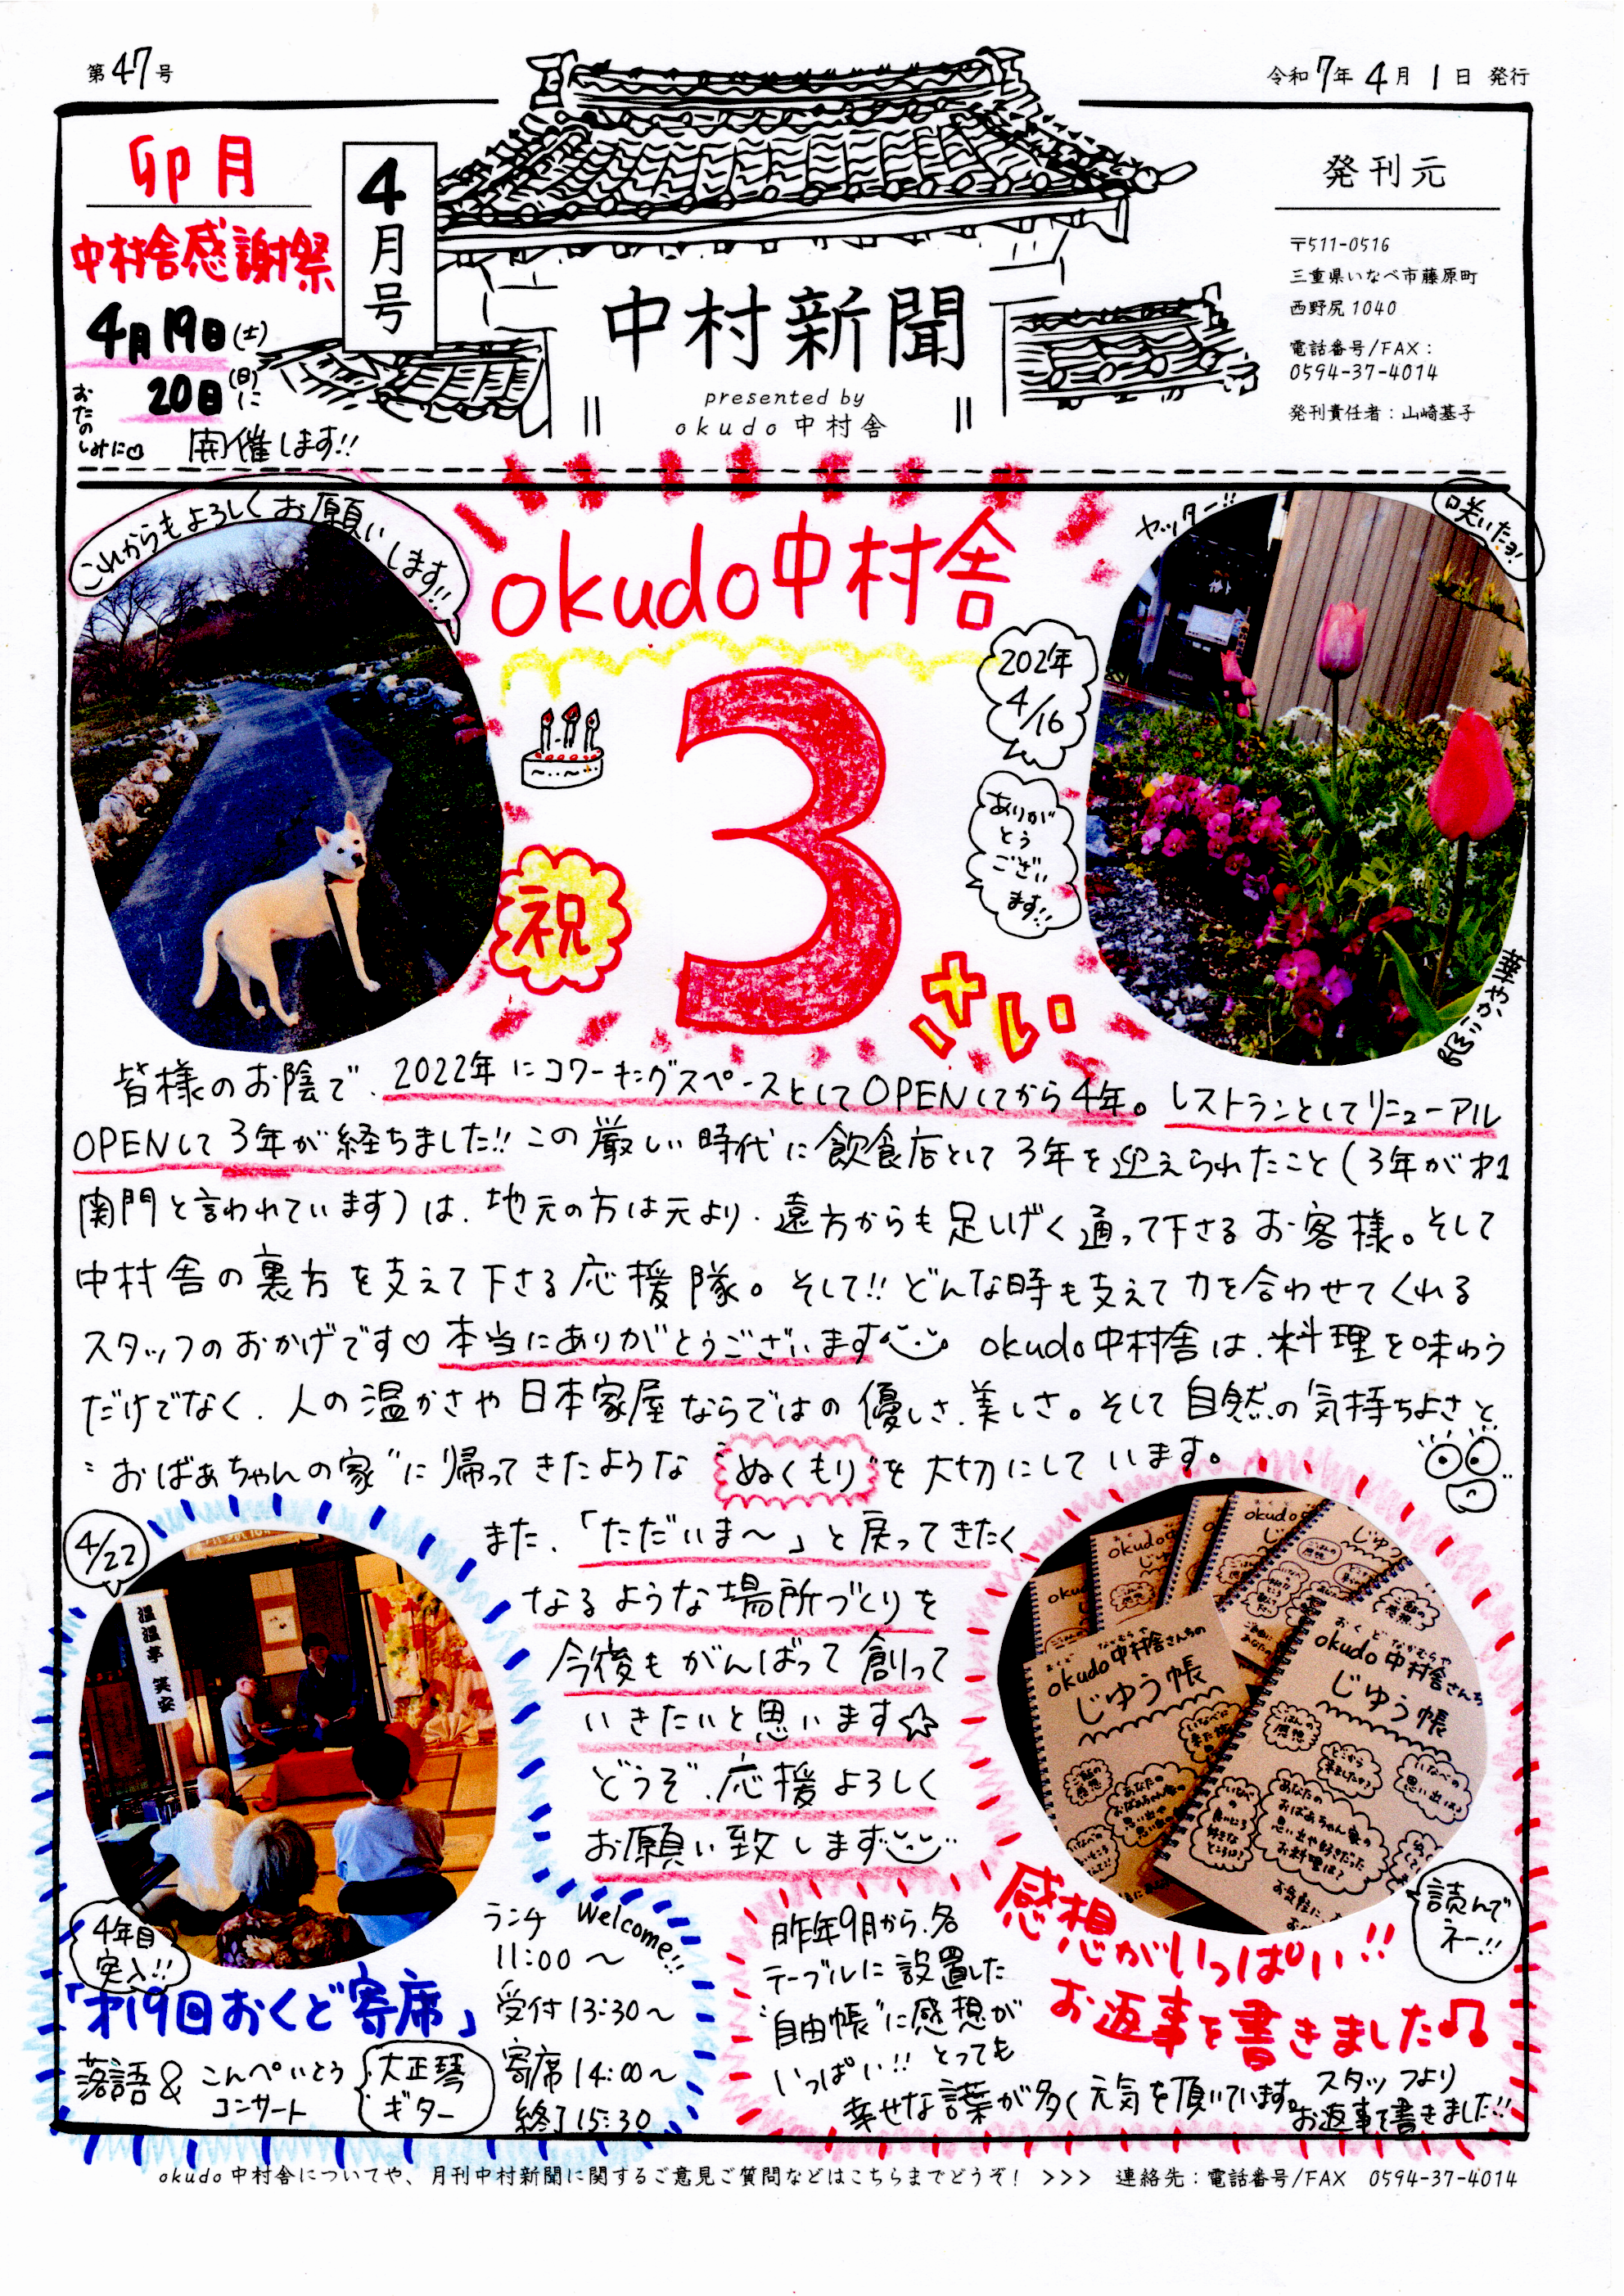 第47号
令和7年4月1日 発行
卯月
中村舎感謝祭
4月19日(土)
20日(日)に
おたのしみに♡
開催します!!
4月号
中村新聞
presented by
okudo 中村舎
発刊元
〒511-0516
三重県いなべ市藤原町
西野尻1040
電話番号/FAX:
0594-37-4014
発刊責任者:山崎基子
これからもよろしくお願いします!!
okudo中村舎
祝
3
さい
4/16
ありが
とう
ござい
ます!!
ヤッター!!
咲いたヨ!
華やか
皆様のお陰で、2022年にコワーキングスペースとしてOPENしてから4年。レストランとしてリニューアル
OPENして3年が経ちました!!この厳しい時代に飲食店として3年を迎えられたこと(3年が才1
関門と言われています)は、地元の方は元より、遠方からも足しげく通って下さるお客様。そして
中村舎の裏方を支えて下さる応援隊。そして!!どんな時も支えて力を合わせてくれる
スタッフのおかげです♡本当にありがとうございます okudo中村舎は、料理を味わう
だけでなく、人の温かさや日本家屋ならではの優しさ、美しさ。そして自然の気持ちよさと
"おばあちゃんの家"に帰ってきたような"ぬくもり"を大切にしています。
また、「ただいま〜」と戻ってきたく
なるような場所づくりを
今後もがんばって創って
いきたいと思います☆
どうぞ、応援よろしく
お願い致します
4/22
温温亭 笑安
4年目
突入!!
「才19回おくど寄席」
落語&こんぺいとう
コンサート
大正琴
ギター
ランチ Welcome!!
11:00〜
受付13:30〜
寄席14:00〜
終了15:30
okudo中村舎さんちの
じゆう帳
おくどなかむらや
okudo中村舎さんち
じゆう帳
ごはんの
感想
どこから
来ましたか?
いなべの
思い出は?
あなたの
おばあちゃん家の
思い出や好きだった
お料理は?
読んで
ネー!!
感想がいっぱい!!
お返事を書きました♫
昨年9月から、各
テーブルに設置した
"自由帳"に感想が
いっぱい!!とっても
幸せな言葉が多く元気を頂いています。
スタッフより
お返事を書きました!!
okudo中村舎についてや、月刊中村新聞に関するご意見ご質問などはこちらまでどうぞ! >>> 連絡先:電話番号/FAX 0594-37-4014